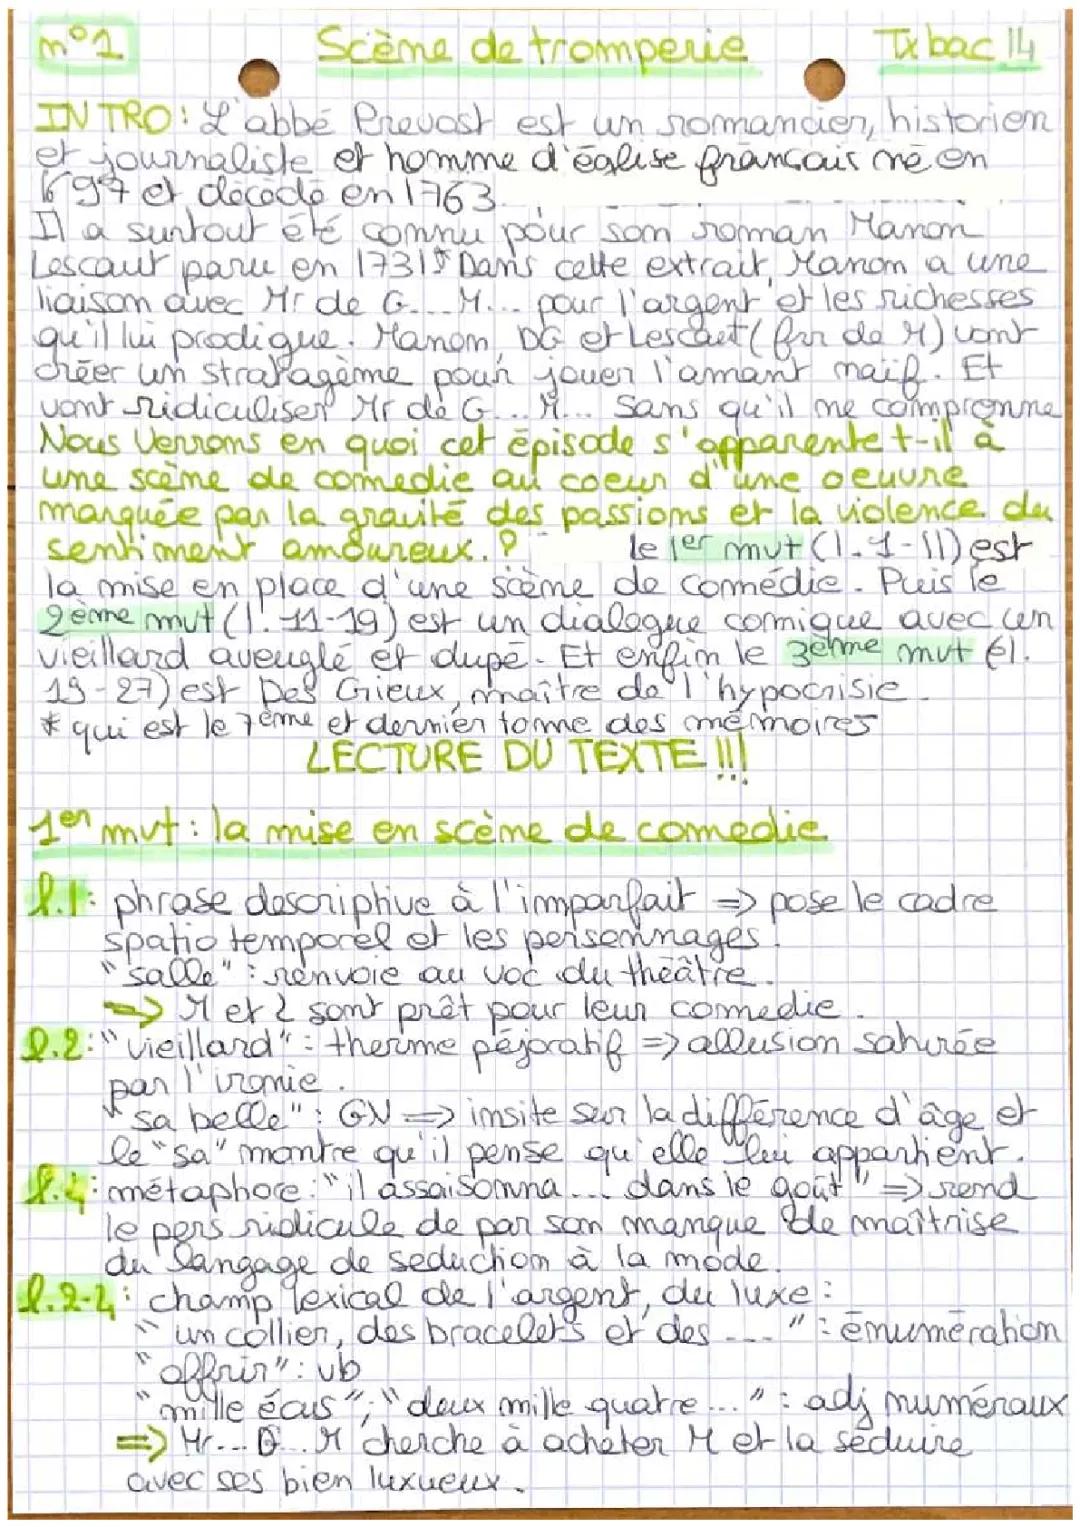 n°1 Scène de tromperie Tx bac 14
INTRO: L'abbé Prevost est un romancier, historien
et journaliste et homme d'église français né en
1697 et décédé en 1763.
Il a surtout été connu pour son roman Manon
Lescaut paru en 1731* Dans cette extrait, Manon a une
liaison avec Mr de G...M... pour l'argent et les richesses
qu'il lui prodigue. Manon, DG et Lescaut (frr de M) vont
créer un stratagème pour jouer l'amant naïf. Et
vont ridiculiser Mr de G...M... sans qu'il ne comprenne
Nous Verrons en quoi cet épisode s'apparente t-il à
une scène de comedie au coeur d'une oeuvre
marquée par la gravité des passions et la violence du
sentiment amoureux.? le 1er mvt (l.1-11) est
la mise en place d'une scène de comédie. Puis le
2ème mvt (l.11-19) est un dialogue comique avec un
vieillard aveuglé et dupé. Et enfin le 3ème mvt (l.
19-27) est Des Grieux, maître de l'hypocrisie.
* qui est le 7ème et dernier tome des mémoires
LECTURE DU TEXTE !!!
1er mvt: la mise en scène de comedie
l.1: phrase descriptive à l'imparfait => pose le cadre
spatio temporel et les personnages.
"salle": renvoie au voc du théâtre.
=> M et L sont prêt pour leur comedie.
l.2: "vieillard": therme péjoratif => allusion saturée
par l'ironie.
"sa belle": GN => insite sur la différence d'âge et
le "sa" montre qu'il pense qu'elle lui appartient.
l.4: métaphore: "il assaisonna... dans le goût" => rend
le pers ridicule de par son manque de maîtrise
du langage de seduction à la mode.
l.2-4: champ lexical de l'argent, du luxe:
"un collier, des bracelets et des ...": énumération
"offrir": vb
"mille écus"; "deux mille quatre...": adj numéraux
=> Mr... G...M cherche à acheter M et la séduire
avec ses bien luxueux.